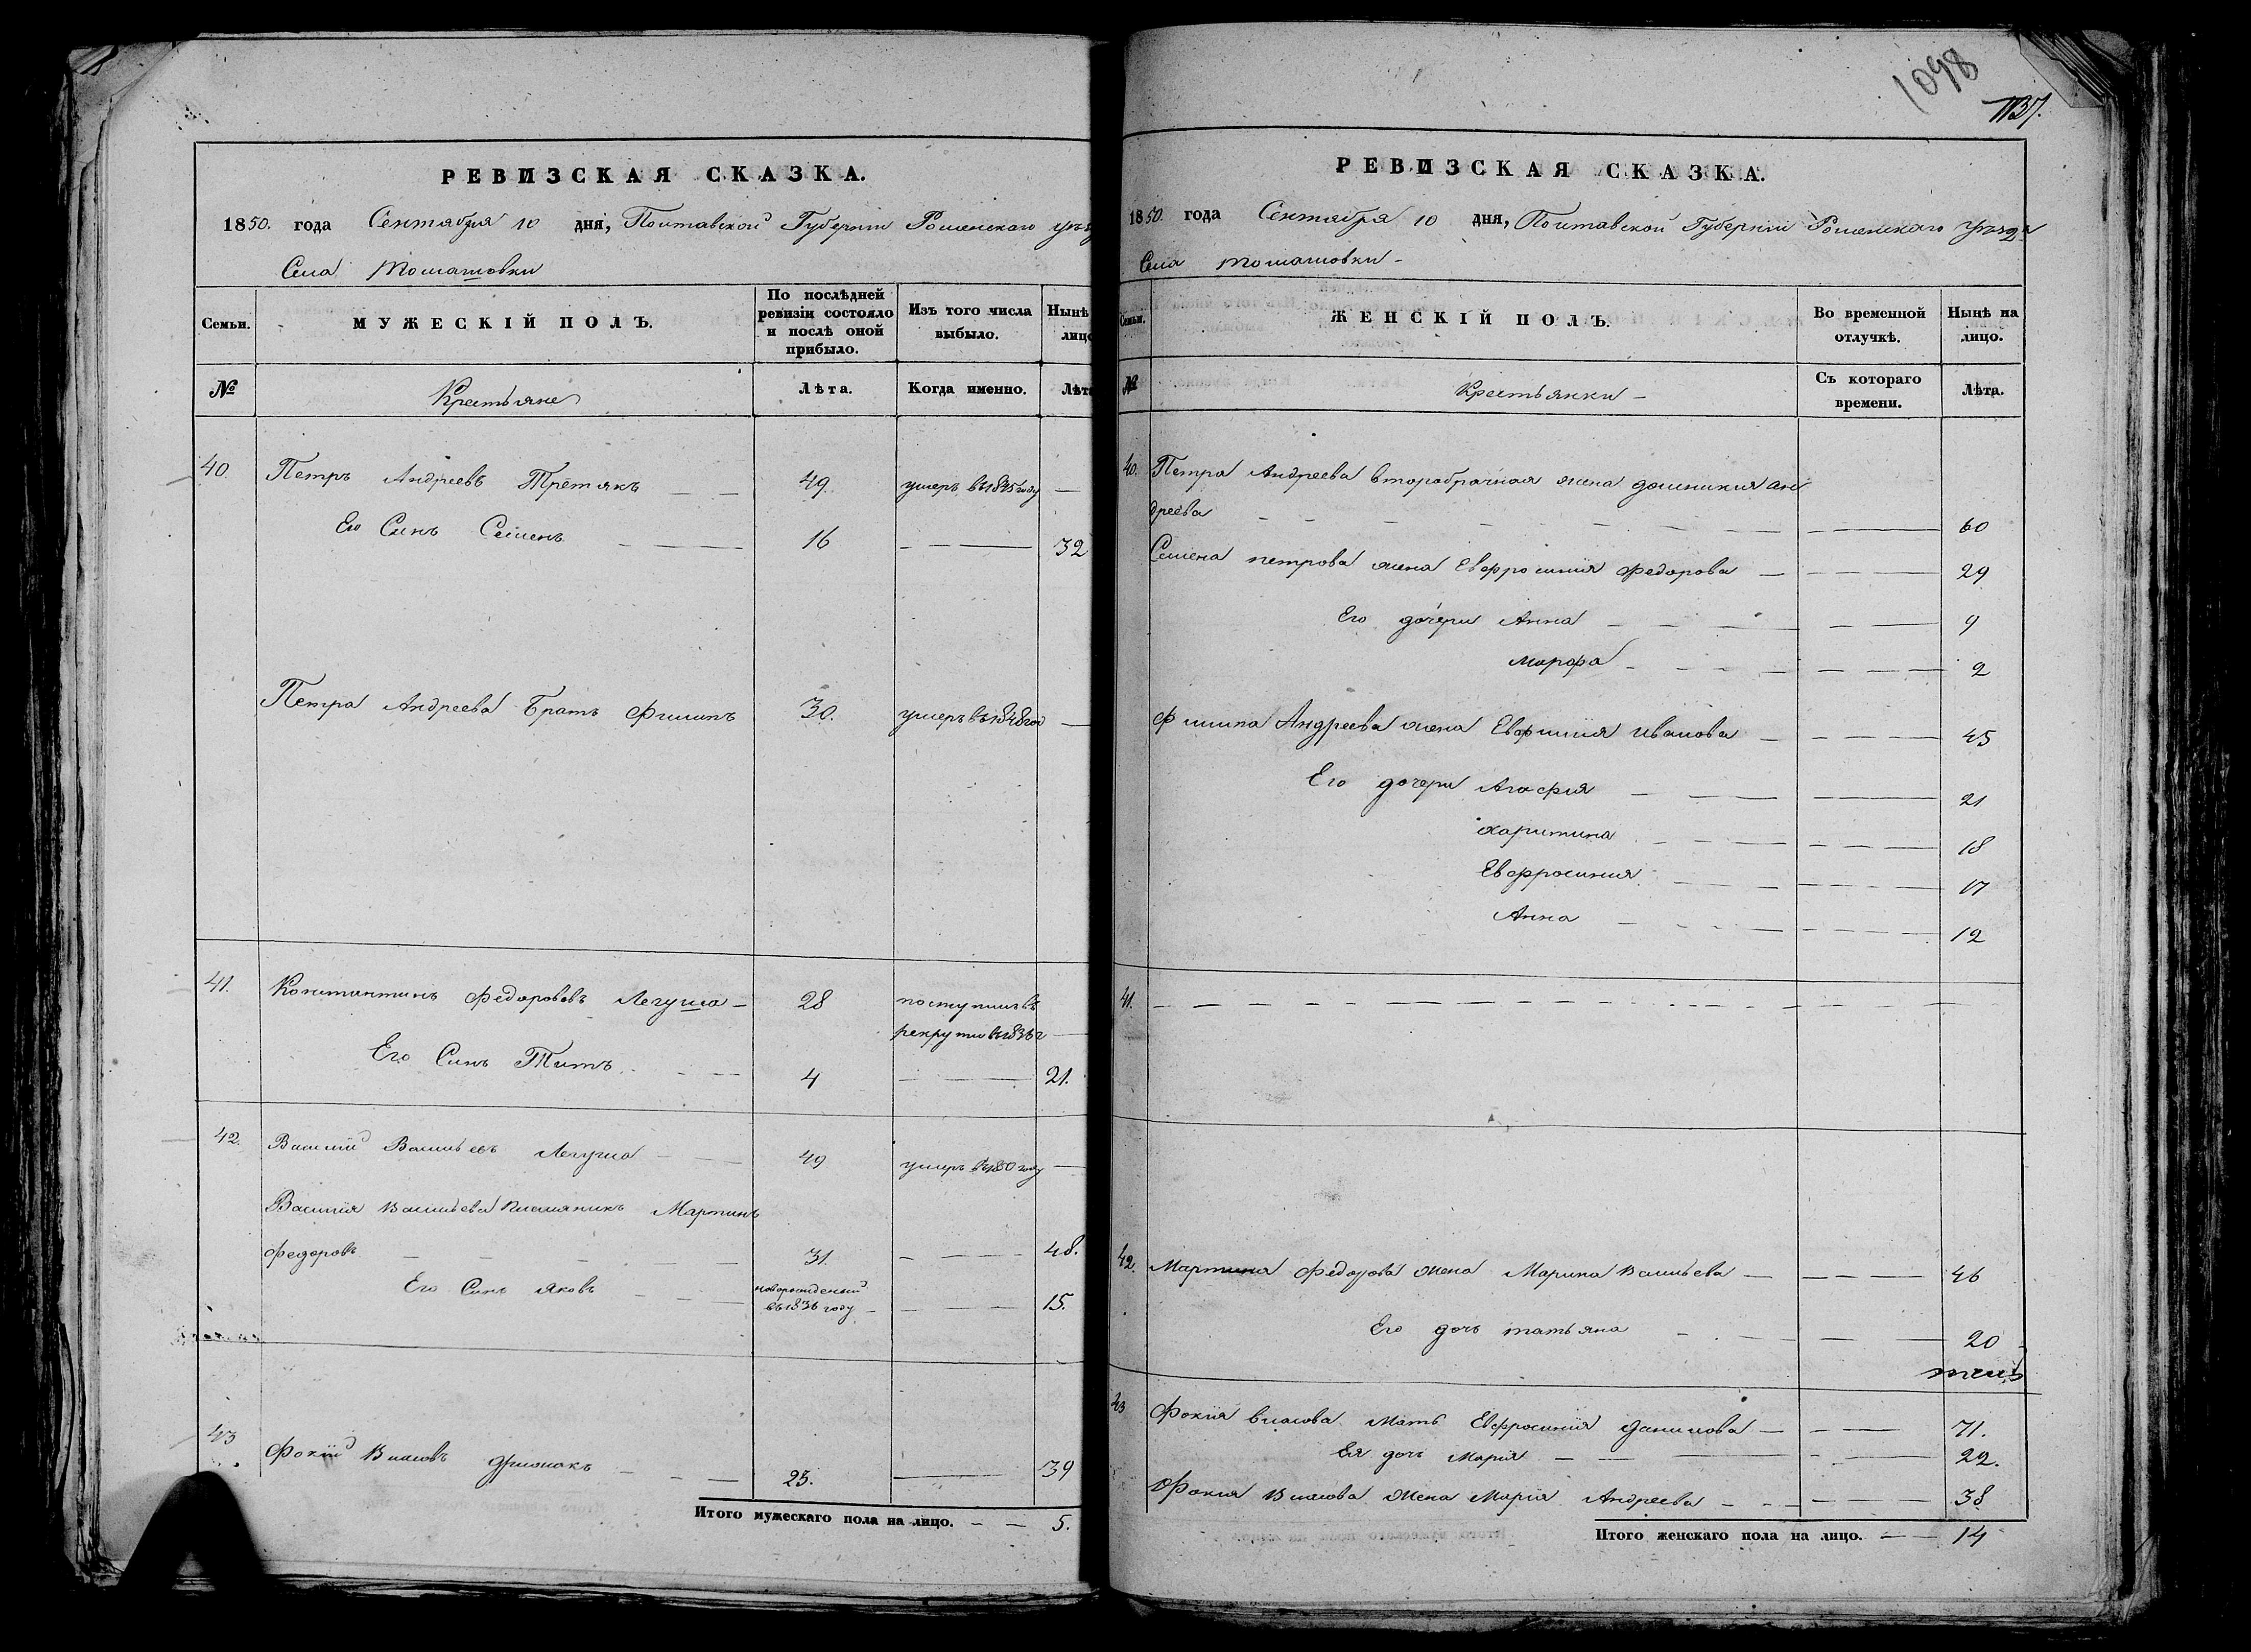 РЕВИЗСКАЯ СКАЗКА.
1850. года Сентября 10 дня, Полтавской Губернии Роменского уез
Села Томашовки
Семьи.
МУЖЕСКІЙ ПОЛЪ.
По послѣдней ревизіи состояло и послѣ оной прибыло.
Изъ того числа выбыло.
Нынѣ лицо
№
Крестьяне
Лѣта.
Когда именно.
Лѣта
40. Петръ Андреевъ Третякъ — — 49. умеръ въ 1845 году —
Его Синъ Семенъ — — — 16 — — — 32
Петра Андреева Братъ Филипъ 30. умеръ въ 1848 год —
41. Константинъ Федоровъ Легуша — 28 поступилъ въ
рекруты въ 1836 г —
Его Синъ Титъ — — — 4 — — 21.
42. Василий Васильевъ Легуша — — 49 умеръ в 1850 году —
Василия Васильева племяникъ Мартинъ
Федоровъ — — — — 31. — — — 48.
Его Синъ Яковъ — — новорожденый
въ 1836 году — — — — 15.
43 Фокий Власовъ — — — 23. — 39
Итого мужескаго пола на лицо. — — 5.
1098
1137.
РЕВИЗСКАЯ СКАЗКА.
1850. года Сентября 10 дня, Полтавской Губернии Роменского уезда
Села Томашовки —
Семьи.
ЖЕНСКІЙ ПОЛЪ.
Во временной отлучкѣ.
Нынѣ на лицо.
№
Крестьянки —
Съ котораго времени.
Лѣта.
40. Петра Андреева второбрачная жена Домникия Ан
дреева — — — — — — — 60
Семена Петрова жена Евфросиния Федорова — — — — 29
Его дочери Анна — — — — — — 9
Марфа — — — — — — — 2
Филипа Андреева жена Евфимия Иванова — — — — 45
Его дочери Агафия — — — — 21
Харитина — — — — — — 18
Евфросиния — — — — — — 17
Анна — — — — — — 12
41. — — — — — — — — — —
42. Мартина Федорова жена Марина Васильева — — — — 46
Его дочь Татьяна — — — — 20
43 Фокия Власова Мать Евфросиния Данилова — — — 71.
Ея дочь Мария — — — — — 22.
Фокия Власова Жена Мария Андреева — — — — 38
Итого женскаго пола на лицо. — — 14